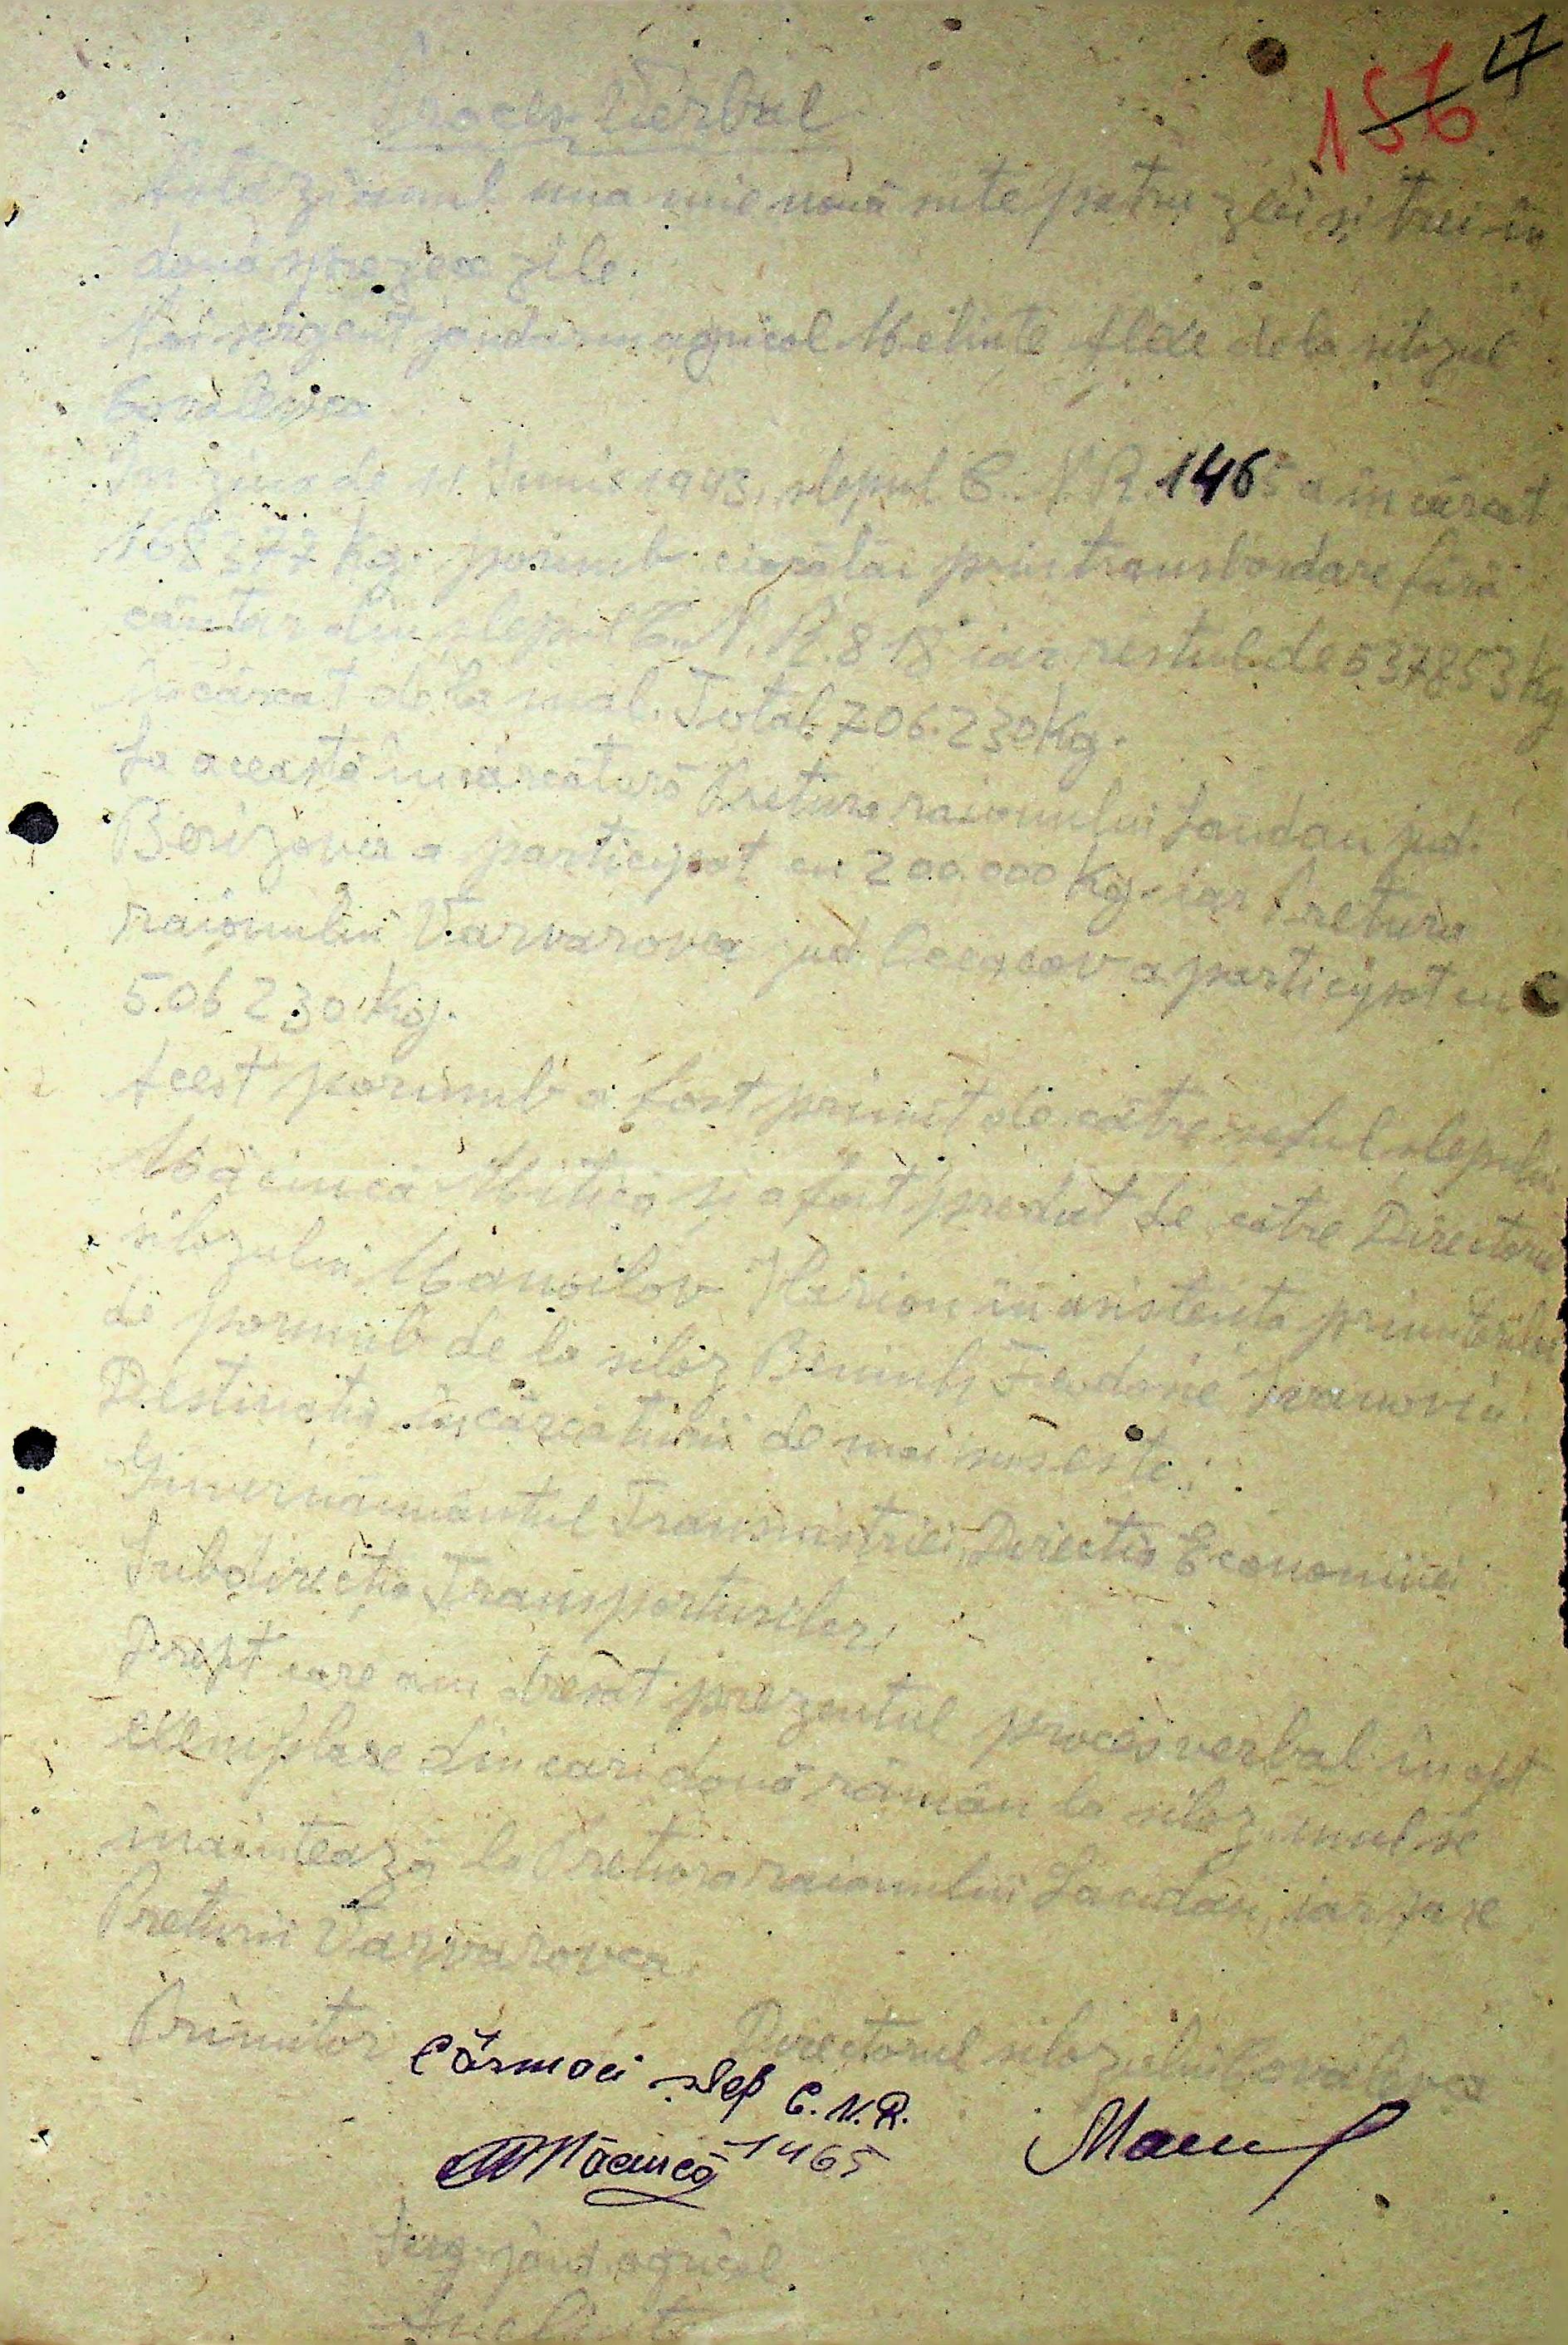 156 7
Proces Verbal
Astăzi anul una mie nouă sute patru zeci și trei în
două spre zece zile.
Noi sergent jandarm agricol Melinte Alexe de la silozul
Covalevca
În ziua de 11 Iunie 1943, șlepul C.N.R. 1465 a încărcat
168377 Kg. porumb ciocălăi prin transbordare fără
cântar din șlepul C.N.R. 818 iar restul de 537853 Kg
încărcat de la mal. Total 706.230 Kg.
La această încărcătură Pretura raionului Landau jud.
Berizovca a participat cu 200.000 Kg. iar Pretura
raionului Varvarovca jud. Oceacov a participat cu
506230 Kg.
Acest porumb a fost primit de către șeful șlepului
Măcincă Mitică și a fost predat de către Directorul
silozului Manoilov Ilarion în asistența primitorilor
de porumb de la siloz Feodorie Ivanovici.
Destinația încărcăturii de mai sus este:
Guvernământul Transnistriei, Direcția Economiei
Subdirecția Transporturilor,
Drept care am dresat prezentul proces verbal în opt
exemplare din cari două rămân la siloz, unul se
înaintează la Pretura raionului Landau, iar se
Preturii Varvarovca.
Primitor Directorul silozului Covalevca
Cârmaci șlep C.N.R.
Măcincă 1465
Serg. jand. agricol